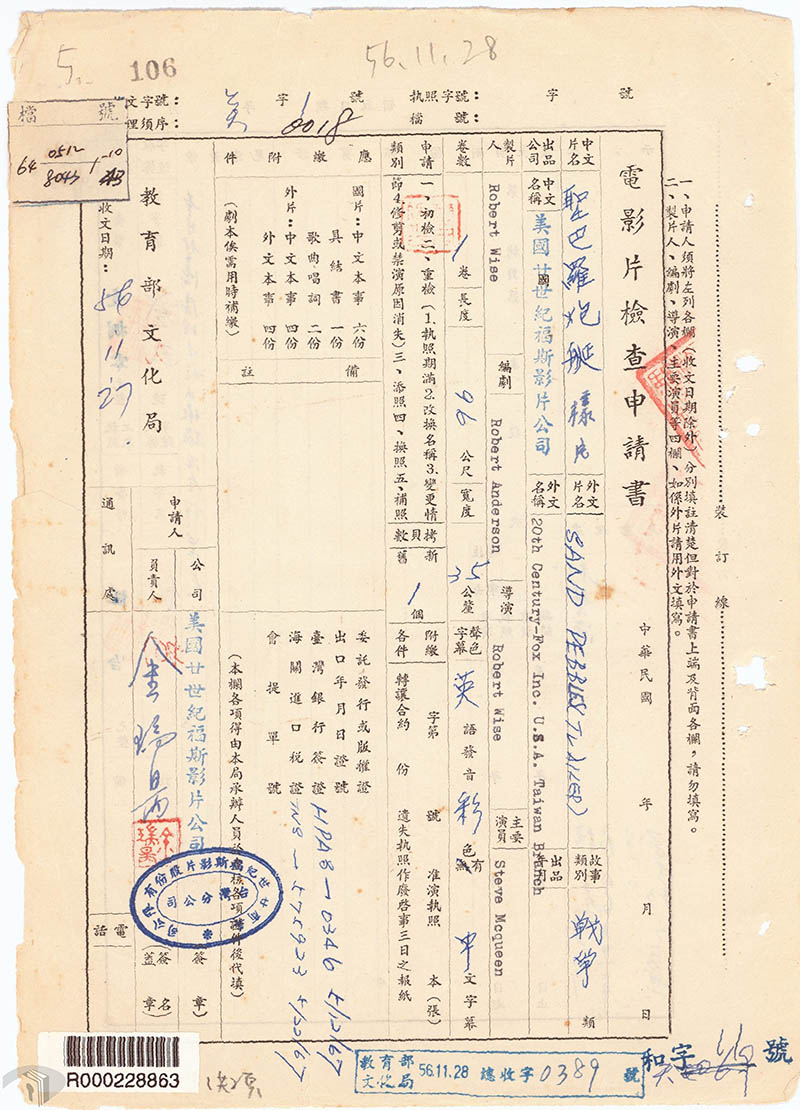 5
106
56.11.28
收文字號：
字
號
執照字號：
字
號
英 1
0018
檔 號：
檔 號
64 0512
8043
10
電影片檢查申請書
中華民國 年 月 日
一、申請人須將左列各欄（收文日期除外）分別填註清楚但對於申請書上端及背面各欄，請勿填寫。
二、製片人、編劇、導演、主要演員等四欄、如係外片請用外文填寫。
裝 訂 線
中文片名 聖巴羅炮艇 樣片
外文片名 SAND PEBBLES TRAILER)
故事類別 戰爭 類
出品公司 中文名稱 美國廿世紀福斯影片公司
外文名稱 20th Century-Fox Inc. U.S.A. Taiwan Branch
出品
製片人 Robert Wise
編劇 Robert Anderson
導演 Robert Wise
主要演員 Steve Mcqueen
卷數 1 卷
長度 96 公尺
寬度 35 公釐
聲色字幕 英 語發音 彩 色有無 中 文字幕
申請類別
一、初檢二、重檢（1.執照期滿2.改換名稱3.變更情節4.修剪或禁演原因消失）三、添照四、換照五、補照
拷貝數 新舊 1 個
附繳各件
字第 號 准演執照 本（張）
轉讓合約 份
遺失執照作廢啓事三日之報紙
應 繳 附 件
國片：中文本事 六份
具結書 一份
歌曲唱詞 二份
外片：中文本事 四份
外文本事 四份
（劇本俟需用時補繳）
備 註
委託發行或版權證
出口年月日證號
臺灣銀行簽證 HPA8-0346 4/12/67
海關進口稅證
會提單號
（本欄各項得由本局承辦人員於審核各項證件後代填）
教育部文化局
收文日期：
56
11
27
申請人
公司 美國廿世紀福斯影片公司
負責人
（簽名蓋章）
通訊處
電話
台灣分公司
R000228863
教育部文化局 56.11.28 總收字 0389 號
和字
號